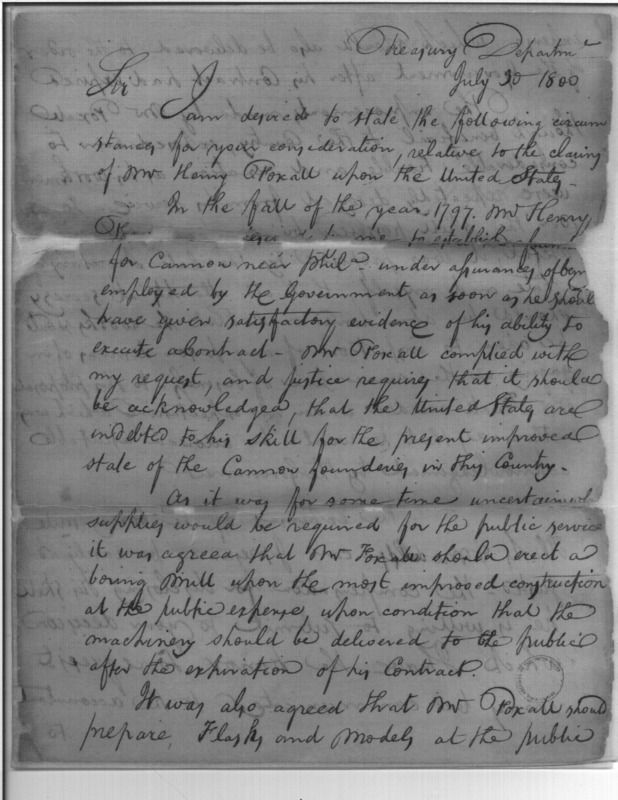 Treasury Departmt
July 30 1800
Sir
I am desired to state the following circum
stances for your consideration, relative to the claims
of Mr Henry Foxall upon the United States.
In the fall of the year 1797. Mr Henry
to me to establish a
for Cannon near Phila. under assurances of being
employed by the Government as soon as he should
have given satisfactory evidence of his ability to
execute a Contract - Mr Foxall complied with
my request, and justice requires that it should
be acknowledged, that the United States are
indebted to his skill for the present improved
state of the Cannon founderies in this Country.
As it was for some time uncertain
supplies would be required for the public service
it was agreed that Mr Foxall should erect a
boring Mill upon the most improved construction
at the public expense, upon condition that the
machinery should be delivered to the public
after the expiration of his Contract.
It was also agreed that Mr Foxall should
prepare, Flasks and Models at the public